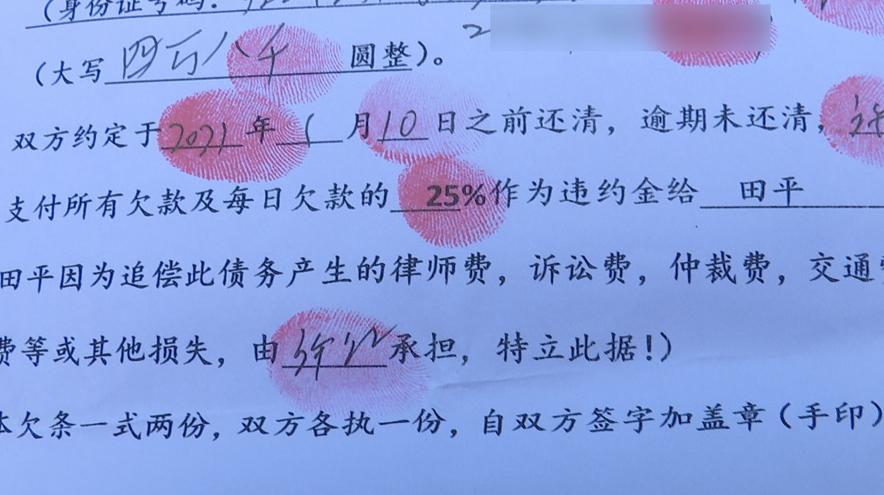 （身份证号码：
（大写 四万八千 圆整）。
双方约定于 2021 年 1 月 10 日之前还清，逾期未还清，
支付所有欠款及每日欠款的 25%作为违约金给 田平
田平因为追偿此债务产生的律师费，诉讼费，仲裁费，交通
费等或其他损失，由 承担，特立此据！）
本欠条一式两份，双方各执一份，自双方签字加盖章（手印）